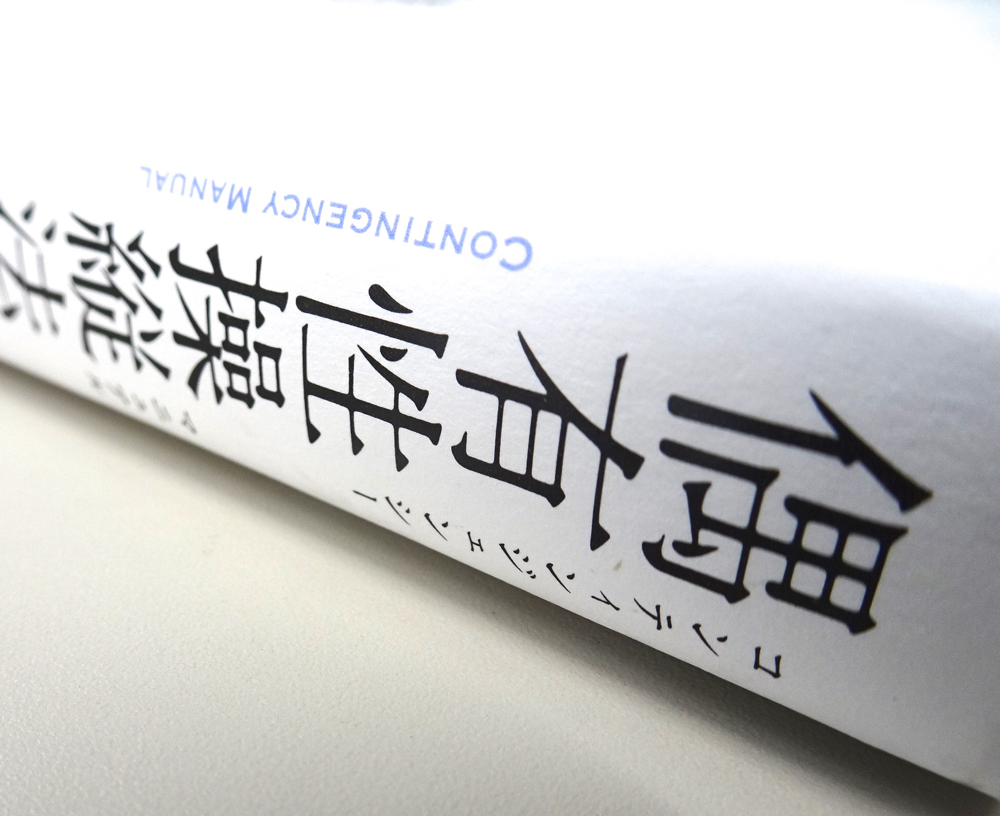 CONTINGENCY MANUAL
偶有性操縦法
コンティンジェンシー マニュアル